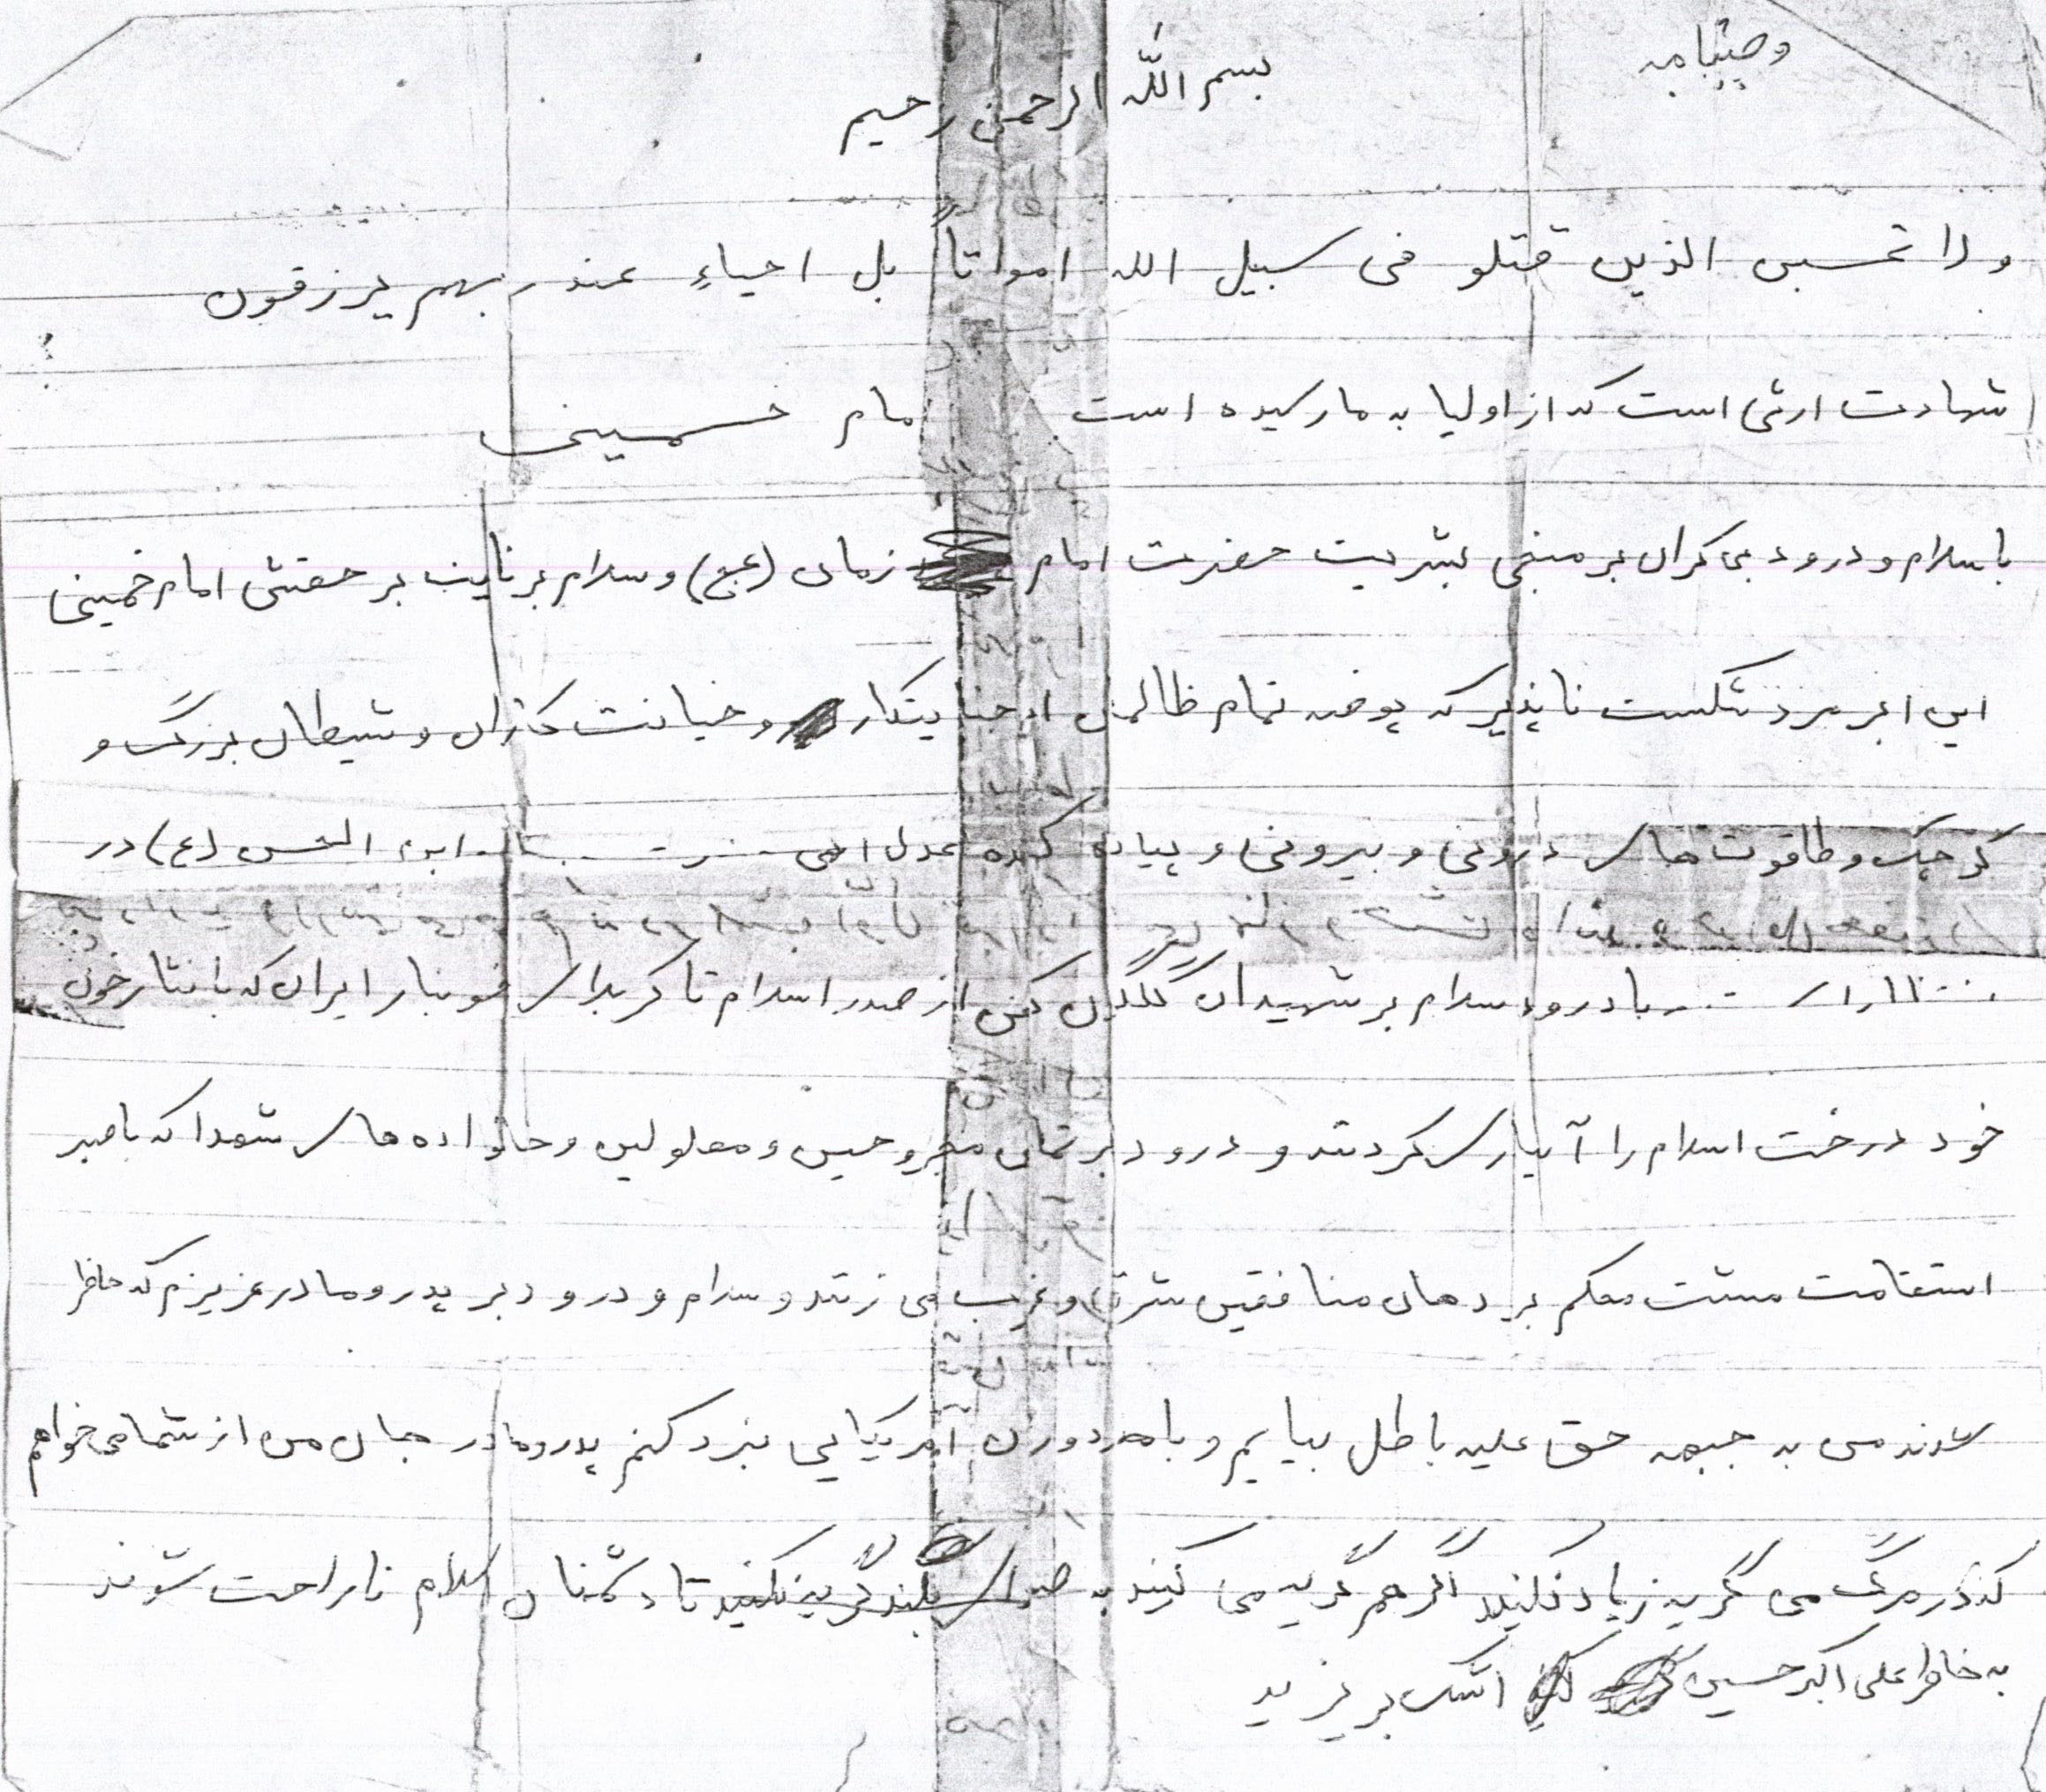 وصیتنامه
بسم الله الرحمن رحیم
ولا تحسبن الذین قتلو فی سبیل الله امواتاً بل احیاءٍ عند ربهم یرزقون
شهادت ارثی است که از اولیا به ما رسیده است مام خمینی
با سلام و درود بی کران بر منجی بشریت حضرت امام زمان (عج) و سلام بر نایب بر حقش امام خمینی
این ابر مرد شکست ناپذیر که پوضه تمام ظالمان از جنایتکار و خیانت کاران و شیطان بزرگ و
کوچک و طاقوت های درونی و بیرونی و پیاده کننده عدل الهی (ع) در
با درود سلام بر شهیدان گلگون کفن از صدر اسلام تا کربلای خونبار ایران که با نثار خون
خود درخت اسلام را آبیاری کردند و درود بر تمامی مجروحین و معلولین و خانواده های شهدا که با صبر
استقامت مشت محکم بر دهان منافقین شرق و غرب می زنند و سلام و درود بر پدر و مادر عزیزم که حاظر
شدند من به جبهه حق علیه باطل بیایم و با مزدوران آمریکایی نبرد کنم پدر و مادر جان من از شما می خواهم
که در مرگ من گریه زیاد نکنید اگر هم گریه می کنید به صدای بلند گریه نکنید تا دشمنان اسلام ناراحت شوند
به خاطر علی اکبر حسین اشک بریزید